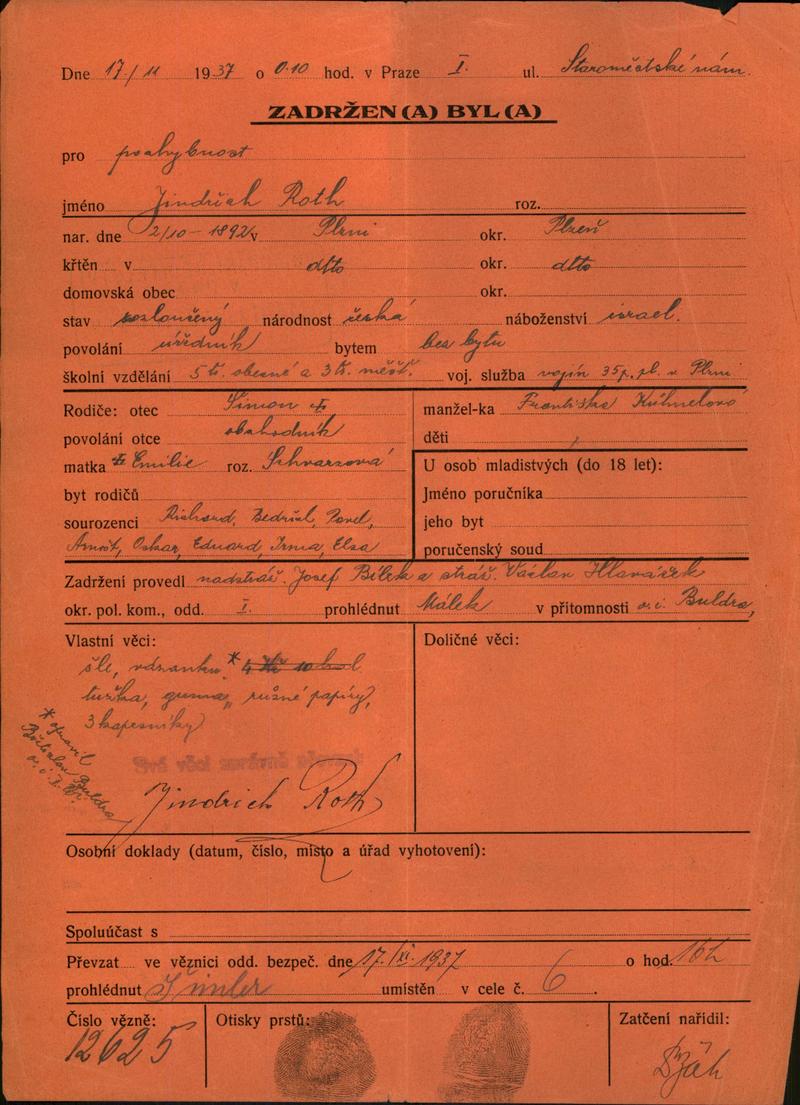 Dne 17/11 1937 o 0.10 hod. v Praze I. ul. Staroměstské nám.
ZADRŽEN(A) BYL(A)
pro pohybnost
jméno Jindřich Roth roz.
nar. dne 2/10 - 1892 v Plzni okr. Plzeň
křtěn v dtto okr. dtto
domovská obec okr.
stav rozloučený národnost česká náboženství israel.
povolání úředník bytem bez bytu
školní vzdělání 5 tř. obecné a 3 tř. měšť. voj. služba vojín 35 p. pl. v Plzni
Rodiče: otec Simon manžel-ka Františka Kühnelová
povolání otce obchodník děti
matka Emilie roz. Schvarzová U osob mladistvých (do 18 let):
byt rodičů Jméno poručníka
sourozenci Richard, Bedřich, Pavel, jeho byt
Arnošt, Oskar, Eduard, Irma, Elsa poručenský soud
Zadržení provedl nadstráž. Josef Bílek a stráž. Václav Hlaváček
okr. pol. kom., odd. I. prohlédnut Málek v přítomnosti v. i. Buldra,
Vlastní věci: Doličné věci:
šle, vázanku, * 4 Kč 10 hal
tužka, guma, různé papíry,
3 kapesníky
* opravil
Břetislav Buldra
v. i.
Jindrich Roth
Osobní doklady (datum, číslo, místo a úřad vyhotovení):
Spoluúčast s
Převzat ve věznici odd. bezpeč. dne 17/XI. 1937 o hod. 16h
prohlédnut Šimler umístěn v cele č. 6.
Číslo vězně: Otisky prstů: Zatčení nařídil:
12625